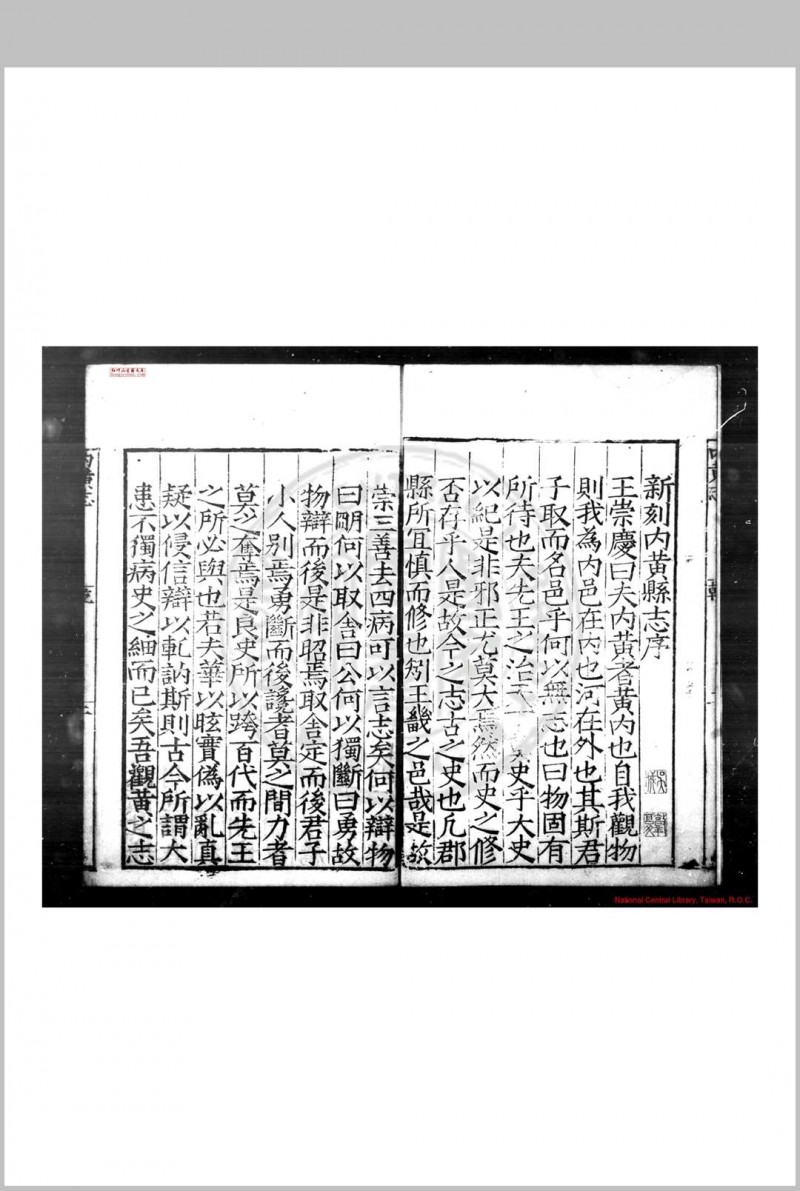 新刻内黄縣志序
王崇慶曰夫内黄者黄内也自我觀物
則我為内邑在内也河在外也其斯君
子取而名邑乎何以無志也曰物固有
所待也夫先王之治天 史乎大史
以紀是非邪正尤莫大焉然而史之修
否存乎人是故今之志古之史也凡郡
縣所宜慎而修也矧王畿之邑哉是故
崇三善去四病可以言志矣何以辯物
曰明何以取舍曰公何以獨斷曰勇故
物辯而後是非昭焉取舍定而後君子
小人别焉勇斷而後讒者莫之間力者
莫之奪焉是良史所以跨百代而先王
之所必與也若夫華以眩實偽以亂真
疑以侵信辯以軋訥斯則古今所謂大
患不獨病史之細而已矣吾觀黄之志
内黄志
National Central Library, Taiwan, R.O.C.